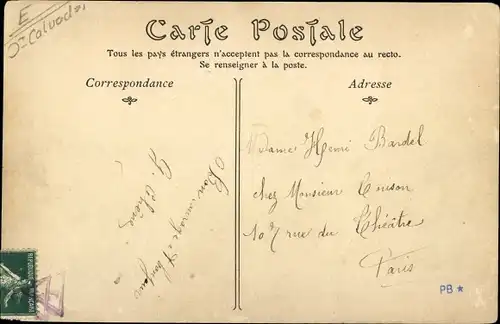 E
Dt Calvados
Carte Postale
Tous les pays étrangers n'acceptent pas la correspondance au recto.
Se renseigner à la poste.
Correspondance
Adresse
Bon courage et
Madame Henri Bardel
chez Monsieur Cuson
No 7 rue du Théâtre
Paris
PB *